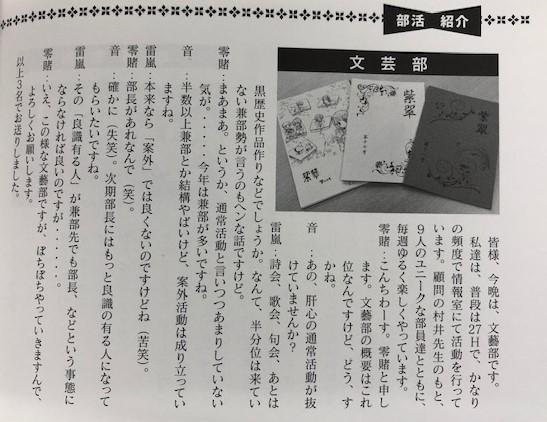 部活 紹介
文芸部
紫翠
紫翠
紫翠
皆様、今晩は、文藝部です。
私達は、普段は27Hで、かなり
の頻度で情報室にて活動を行って
います。顧問の村井先生のもと、
9人のユニークな部員達とともに、
毎週ゆるく楽しくやっています。
零賭：こんちわーす。零賭と申し
ます。文藝部の概要はこれ
位なんですけど、どう、す
かね。
音：あの、肝心の通常活動が抜
けていませんか？
雷嵐：詩会、歌会、句会、あとは
黒歴史作品作りなどでしょうか。なんて、半分位は来てい
ない兼部勢が言うのもヘンな話ですけど。
零賭：まあまあ。というか、通常活動と言いつつあまりしていない
気が。．．．．今年は兼部が多いですね。
音：半数以上兼部とか結構やばいけど、案外活動は成り立ってい
ますね。
雷嵐：本来なら「案外」では良くないのですけどね（苦笑）。
零賭：部長があれなんで（笑）。
音：確かに（失笑）。次期部長にはもっと良識の有る人になって
もらいたいですね。
雷嵐：その「良識有る人」が兼部先でも部長、などという事態に
ならなければ良いのですが・・・・・・。
零賭：いえ、この様な文藝部ですが、ぼちぼちやっていきますんで、
よろしくお願いします。
以上3名でお送りしました。